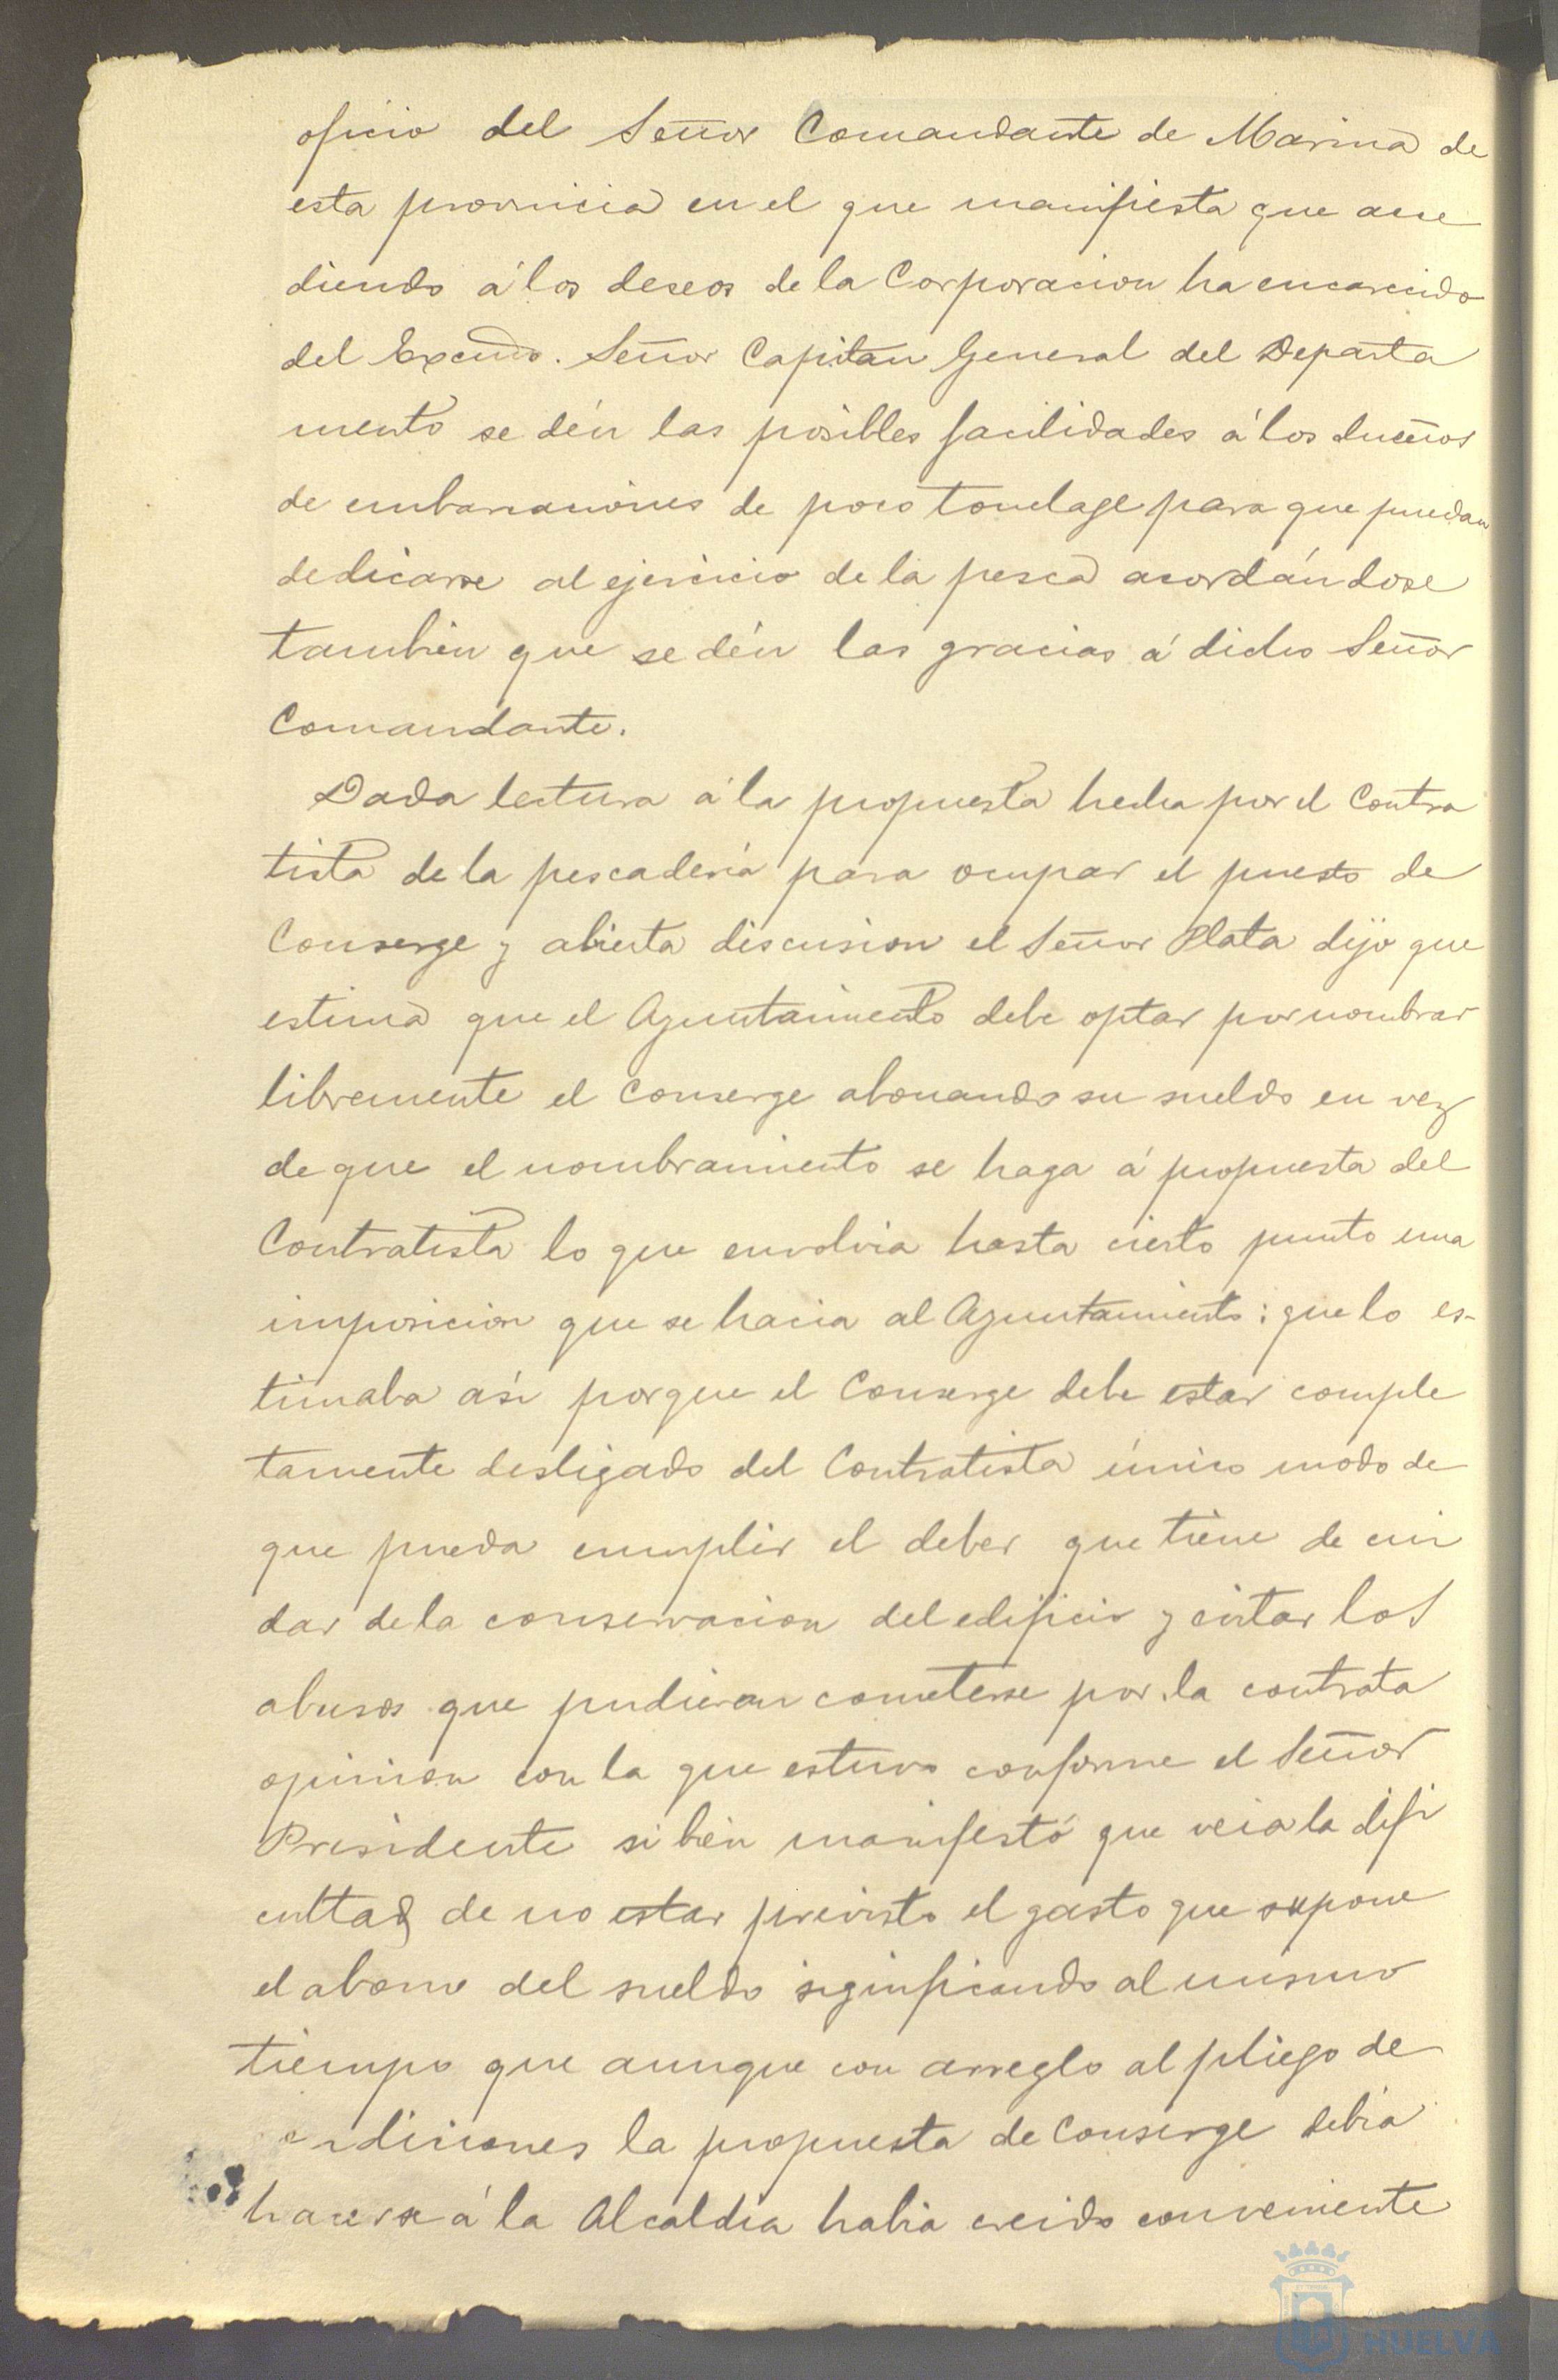 oficio del Señor Comandante de Marina de
esta provincia en el que manifiesta que acce
diendo á los deseos de la Corporacion ha encarecido
del Excmo. Señor Capitan General del Departa
mento se dén las posibles facilidades á los dueños
de embarcaciones de poco tonelage para que puedan
dedicarse al ejercicio de la pesca acordándose
tambien que se dén las gracias á dicho Señor
Comandante.
Dada lectura á la propuesta hecha por el Contra
tista de la pescadería para ocupar el puesto de
Conserge y abierta discusion el Señor Plata dijo que
estima que el Ayuntamiento debe optar por nombrar
libremente el Conserge abonando su sueldo en vez
de que el nombramiento se haga á propuesta del
Contratista lo que envolvia hasta cierto punto una
imposicion que se hacia al Ayuntamiento: que lo es-
timaba así porque el Conserge debe estar comple
tamente desligado del Contratista único modo de
que pueda cumplir el deber que tiene de cui
dar de la conservacion del edificio y evitar los
abusos que pudieran cometerse por la contrata
opinion con la que estuvo conforme el Señor
Presidente si bien manifestó que veia la difi
cultad de no estar previsto el gasto que supone
el abono del sueldo significando al mismo
tiempo que aunque con arreglo al pliego de
condiciones la propuesta de Conserge debia
hacerse á la Alcaldia habia creido conveniente
HUELVA